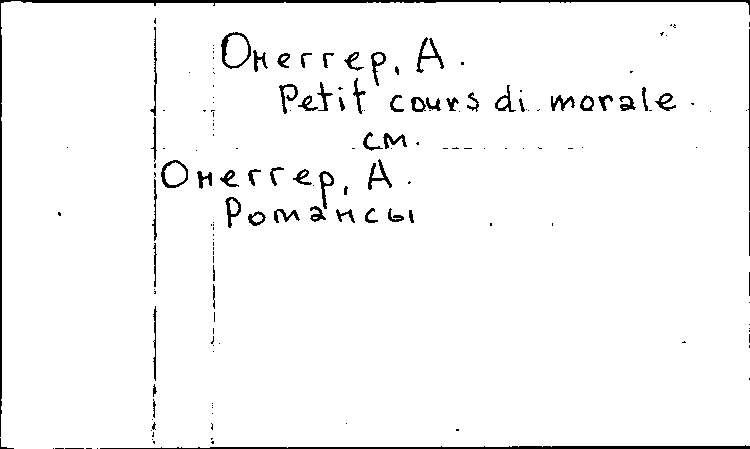 Онеггер, А.
Petit cours di morale
см.
Онеггер, А.
Романсы